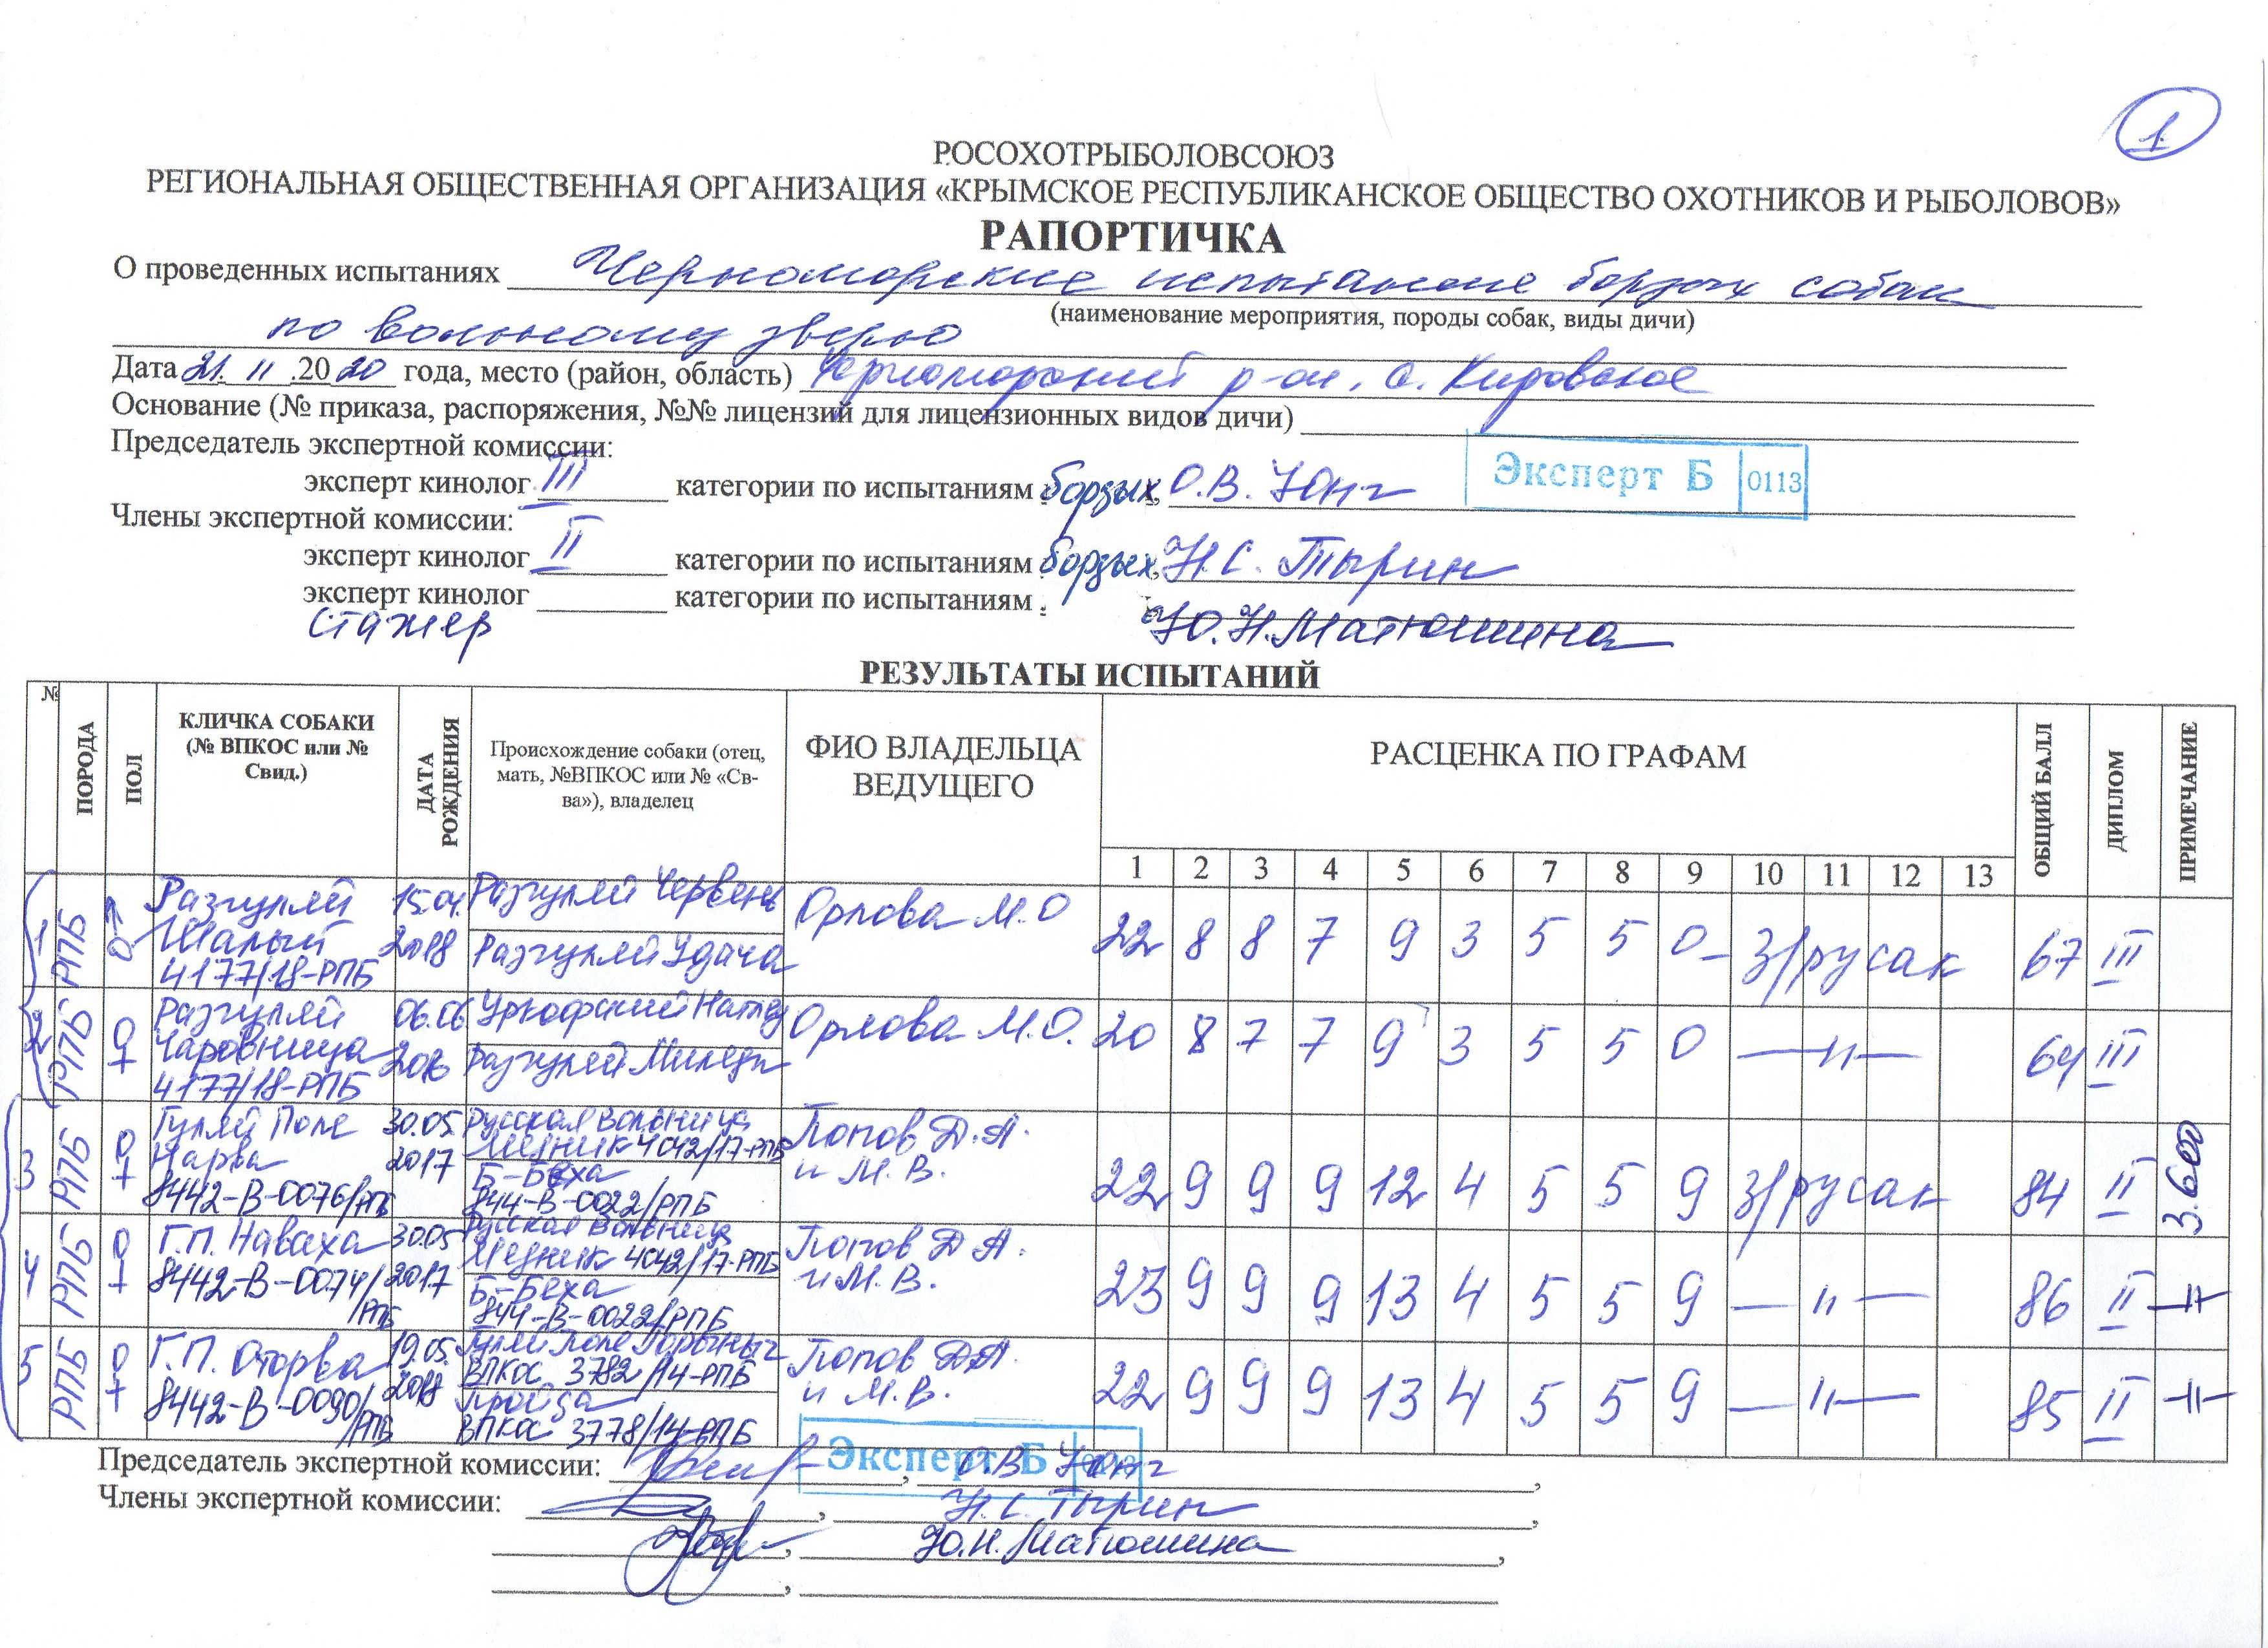 1.
РОСОХОТРЫБОЛОВСОЮЗ
РЕГИОНАЛЬНАЯ ОБЩЕСТВЕННАЯ ОРГАНИЗАЦИЯ «КРЫМСКОЕ РЕСПУБЛИКАНСКОЕ ОБЩЕСТВО ОХОТНИКОВ И РЫБОЛОВОВ»
РАПОРТИЧКА
О проведенных испытаниях Черноморские испытание борзых собак
(наименование мероприятия, породы собак, виды дичи)
по вольному зверю
Дата 21. 11 .20 20 года, место (район, область) Черноморский р-он, с. Кировское
Основание (№ приказа, распоряжения, №№ лицензий для лицензионных видов дичи)
Председатель экспертной комиссии:
эксперт кинолог III категории по испытаниям борзых, О.В. Юнг Эксперт Б 0113
Члены экспертной комиссии:
эксперт кинолог II категории по испытаниям борзых, Н.С. Тырин
эксперт кинолог категории по испытаниям
стажер Ю.Н. Матюшина
РЕЗУЛЬТАТЫ ИСПЫТАНИЙ
№ ПОРОДА ПОЛ КЛИЧКА СОБАКИ (№ ВПКОС или № Свид.) ДАТА РОЖДЕНИЯ Происхождение собаки (отец, мать, №ВПКОС или № «Св-ва»), владелец ФИО ВЛАДЕЛЬЦА ВЕДУЩЕГО РАСЦЕНКА ПО ГРАФАМ ОБЩИЙ БАЛЛ ДИПЛОМ ПРИМЕЧАНИЕ
1 2 3 4 5 6 7 8 9 10 11 12 13
1 РПБ ♂ Разгуляй Шалый 4177/18-РПБ 15.04. 2018 Разгуляй Червень Разгуляй Удача Орлова М.О 22 8 8 7 9 3 5 5 0 – з/русак 67 III
2 РПБ ♀ Разгуляй Чаровница 4177/18-РПБ 06.06 2016 Разгуляй Миледи Орлова М.О. 20 8 7 7 9 3 5 5 0 —〃— 64 III
3 РПБ ♀ Гуляй Поле Нарва 8442-В-0076/РПБ 30.05. 2017 Русская Вольница Медник 4042/17-РПБ Б-Беха 844-В-0022/РПБ Попов Д.А. и М.В. 22 9 9 9 12 4 5 5 9 з/русак 84 II
4 РПБ ♀ Г.П. Наваха 8442-В-0074/РПБ 30.05 2017 Русская Вольница Медник 4042/17-РПБ Б-Беха 844-В-0022/РПБ Попов Д А. и М.В. 23 9 9 9 13 4 5 5 9 —〃— 86 II —〃—
5 РПБ ♀ Г.П. Оторва 8442-В-0090/РПБ 19.05. 2018 Гуляй Поле Горыныч ВПКОС 3782/14-РПБ ВПКОС 3778/14-РПБ Попов Д.А. и М.В. 22 9 9 9 13 4 5 5 9 —〃— 85 II —〃—
Председатель экспертной комиссии: , О.В Юнг , Эксперт Б
Члены экспертной комиссии: , Н.С. Тырин ,
, Ю.Н. Матюшина ,
,